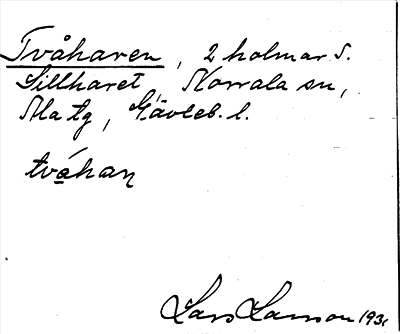 Tvåharen, 2 holmar S.
Sillharet, Norrala sn,
Ala tg, Gävleb. l.
tváhan
Lars Larsson 193